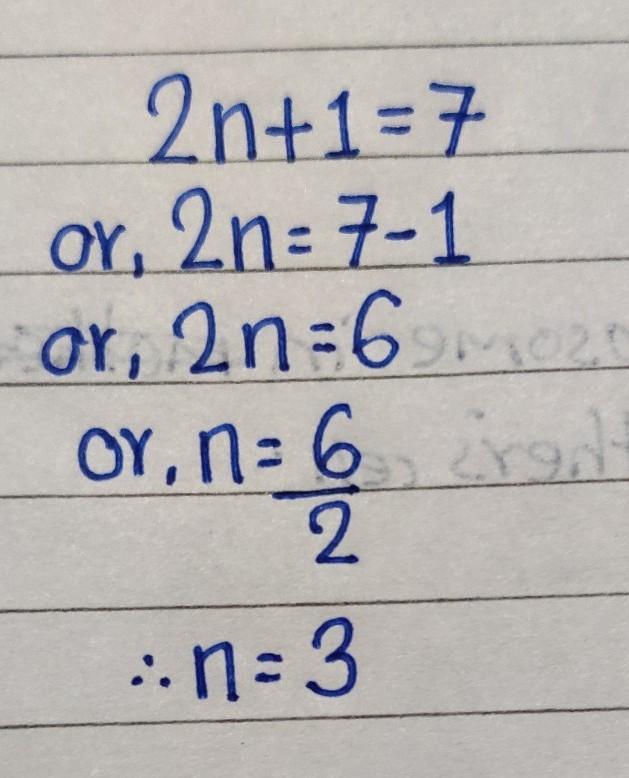 2n+1=7
or, 2n=7-1
or, 2n=6
or, n=6/2
∴ n=3